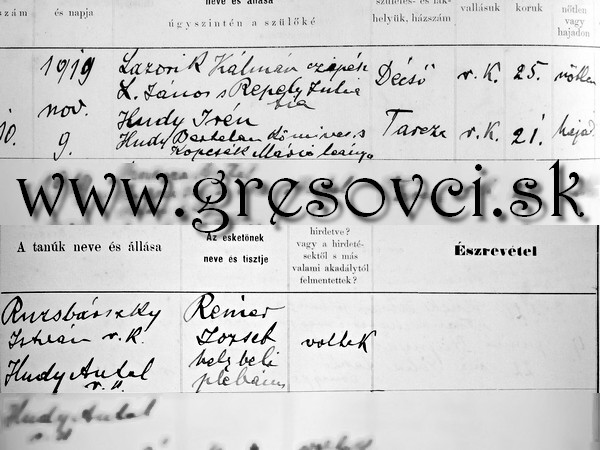 szám
és napja
neve és állása
úgyszintén a szülőké
születés- és lak-
helyük, házszám
vallásuk
koruk
nőtlen
vagy
hajadon
1919
nov.
9.
Lazorik Kálmán
L. János s Repely Júlia
fia
Hudy Irén
Hudy Bertalan kőmives s
Kopcsák Mária leánya
Décső
Tarcza
r. K.
r. K.
25.
21.
nőtlen
hajad.
www.gresovci.sk
A tanúk neve és állása
Az esketőnek
neve és tisztje
hirdetve?
vagy a hirdeté-
sektől s más
valami akadálytól
felmentettek?
Észrevétel
Ruzsbászky
István r. K.
Hudy Antal
r. K.
Reiner
József
helybeli
plébános
voltak
Hudy Antal